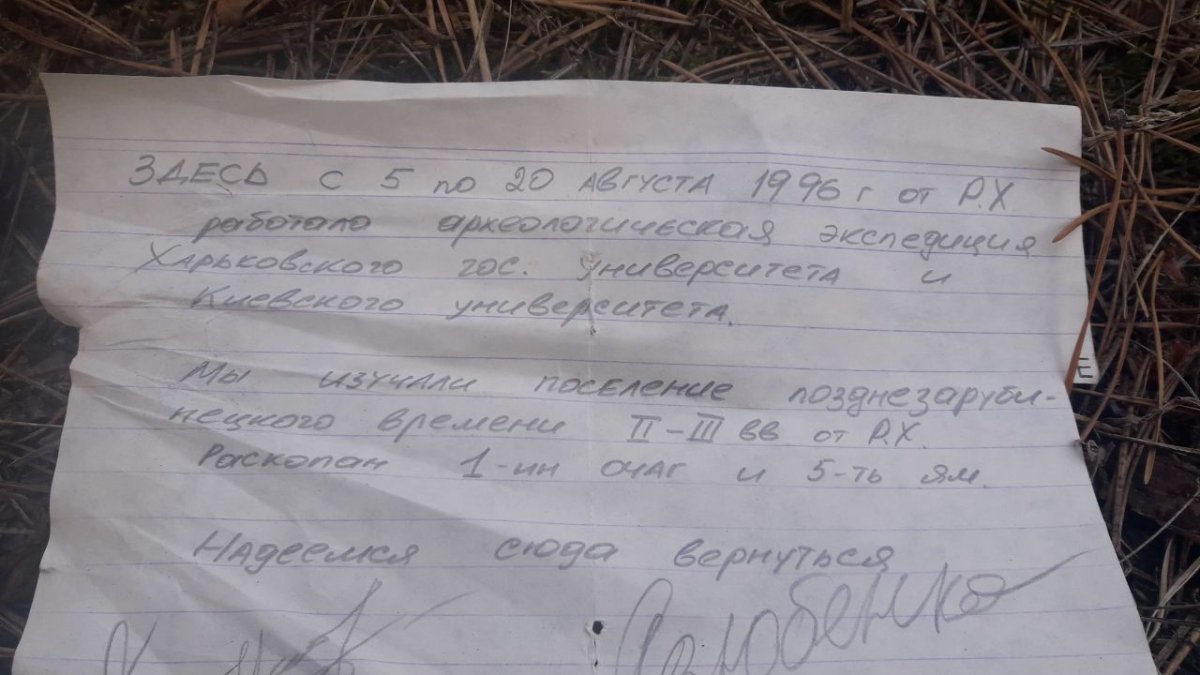 ЗДЕСЬ С 5 по 20 АВГУСТА 1996 г от Р.Х
работала археологическая экспедиция
Харьковского гос. университета и
Киевского университета.
Мы изучали поселение позднезаруби-
нецкого времени II-III вв от Р.Х.
Раскопан 1-ин очаг и 5-ть ям.
Надеемся сюда вернуться
Е